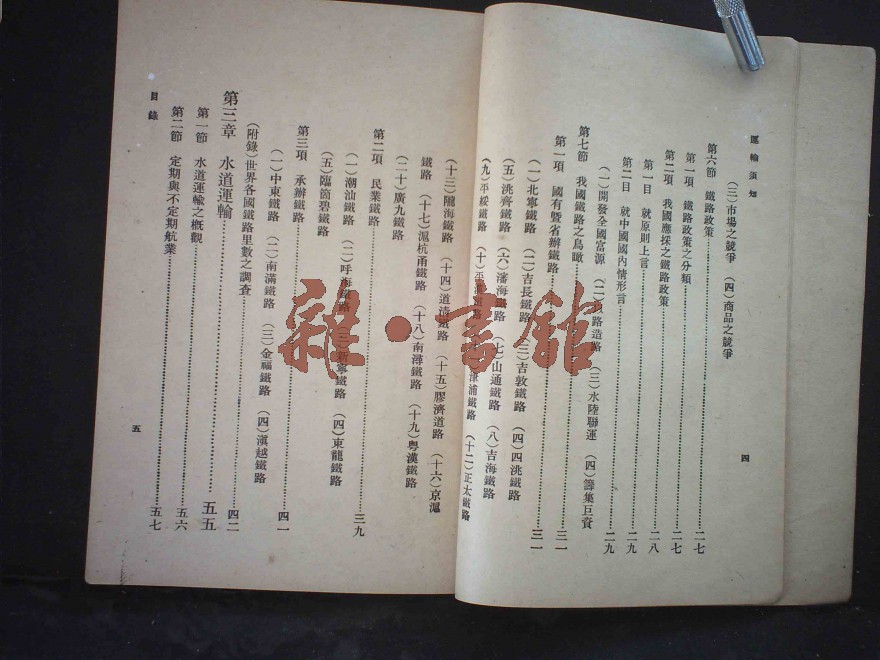 運輸須知
(三)市場之競爭 (四)商品之競爭
第六節 鐵路政策……二七
第一項 鐵路政策之分類……二七
第二項 我國應採之鐵路政策……二八
第一目 就原則上言……二九
第二目 就中國國內情形言……二九
(一)開發全國富源 (二)以路造路 (三)水陸聯運 (四)籌集巨資
第七節 我國鐵路之鳥瞰……三一
第一項 國有暨省辦鐵路……三一
(一)北寧鐵路 (二)吉長鐵路 (三)吉敦鐵路 (四)四洮鐵路
(五)洮齊鐵路 (六)瀋海鐵路 (七)山通鐵路 (八)吉海鐵路
(九)平綏鐵路 (十)平漢鐵路 津浦鐵路 (十二)正太鐵路
四
(十三)隴海鐵路 (十四)道清鐵路 (十五)膠濟道路 (十六)京滬
鐵路 (十七)滬杭甬鐵路 (十八)南潯鐵路 (十九)粵漢鐵路
(二十)廣九鐵路
第二項 民業鐵路……三九
(一)潮汕鐵路 (二)呼海鐵路 (三)新寧鐵路 (四)東龍鐵路
(五)臨箇碧鐵路
第三項 承辦鐵路……四一
(一)中東鐵路 (二)南滿鐵路 (三)金福鐵路 (四)滇越鐵路
(附錄)世界各國鐵路里數之調查……四二
第三章 水道運輸……五五
第一節 水道運輸之概觀……五六
第二節 定期與不定期航業……五七
目錄
五
雜·書館